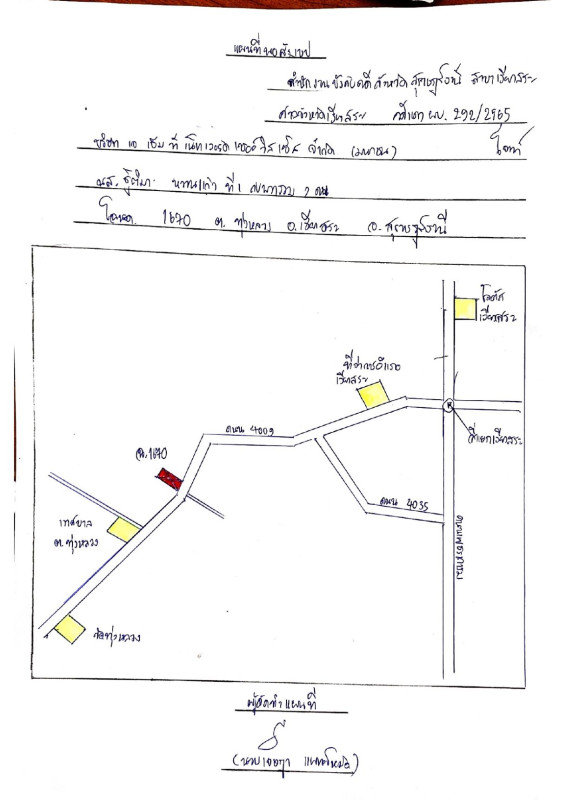 แผนที่พอสังเขป
สำนักงานบังคับคดีจังหวัดสุราษฎร์ธานี สาขาเวียงสระ
ศาลจังหวัดเวียงสระ คดีหมายเลขแดงที่ ผบ. 292/2565
บริษัท เอ เอ็ม ที เซอร์วิสเซส จำกัด (มหาชน) โจทก์
น.ส. ฐิติมา ที่ 1 กับพวกรวม 2 คน
โฉนด 1670 ต. ทุ่งหลวง อ. เวียงสระ จ. สุราษฎร์ธานี
โลตัส
เวียงสระ
ที่ว่าการอำเภอ
เวียงสระ
ถนน 4009
สี่แยกเวียงสระ
ฉ. 1670
ถนน 4035
เทศบาล
ต. ทุ่งหลวง
วัดทุ่งหลวง
ผู้จัดทำแผนที่